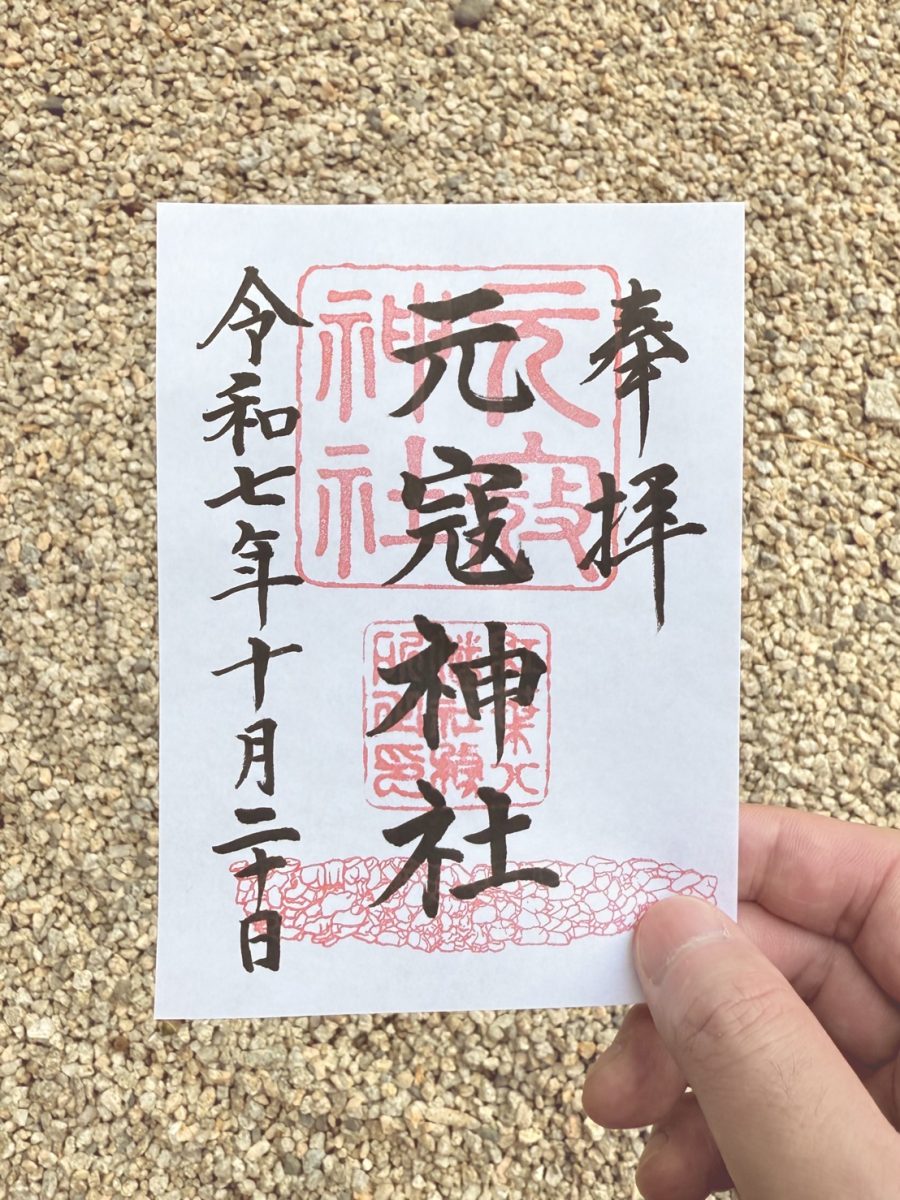 奉拝
元寇神社
令和七年十月二十日
元寇神社